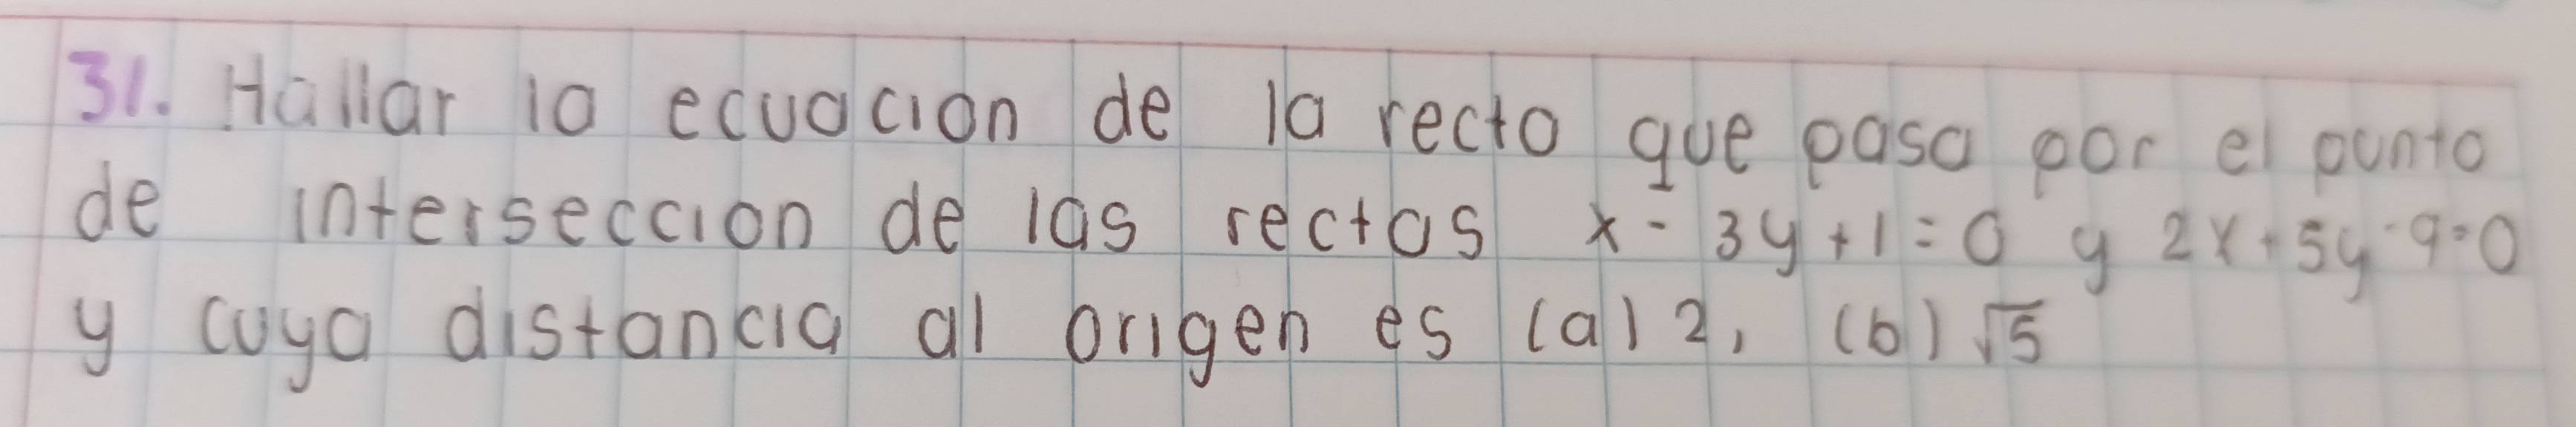 31. Hallar la ecuacion de la recta que pasa por el punto
de interseccion de las rectas x - 3y + 1 = 0 y 2x + 5y - 9 = 0
y cuya distancia al origen es (a) 2, (b) √5